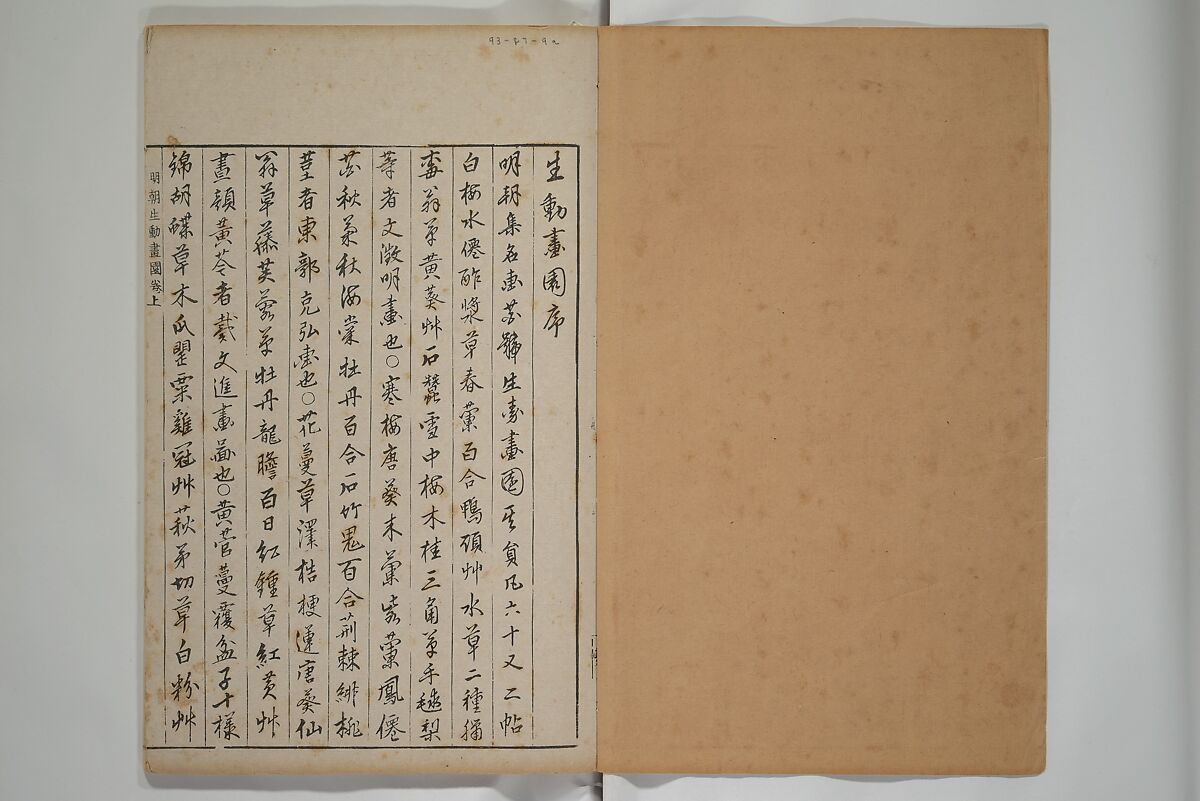 93-87-9a
生動畫園序
明朝集名畫花髴生寿畫園其負凡六十又二帖
白梅水僊酢漿草春蘭百合鴨頭艸水草二種
毒翁草黄葵艸石蠶雪中梅木桂三角草手毬梨
等者文徴明畫也〇寒梅唐葵末蘭紫蘭鳳僊
花秋菊秋海棠牡丹百合石竹鬼百合荊棘緋桃
菫者東郭克弘畫也〇花蔓草澤桔梗蓮唐葵仙
翁草藤芙蓉草牡丹龍膽百日紅鍾草紅黄艸
晝顔黄芩者戴文進畫畾也〇黄菅蔓覆盆子十樣
錦胡蝶草木瓜罌粟雞冠艸萩弟切草白粉艸
明朝生動畫園卷上